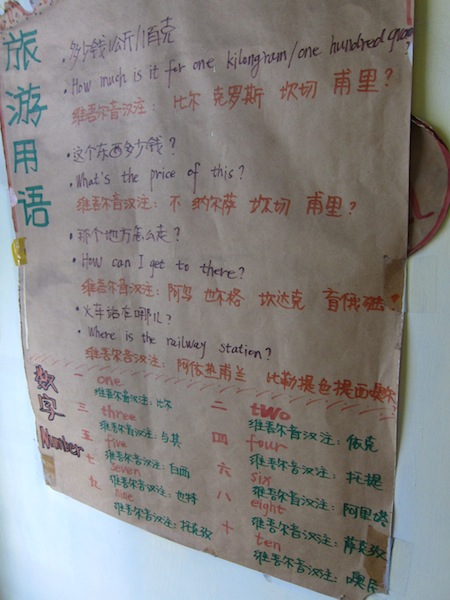 旅游用语
·多少钱1公斤/1百克
·How much is it for one kilongram/one hundred gram
维吾尔音汉注: 比尔 克罗斯 坎切 甫里?
·这个东西多少钱?
·What's the price of this?
维吾尔音汉注: 不 纳尔萨 坎切 甫里?
·那个地方怎么走?
·How can I get to there?
维吾尔音汉注: 阿鸟 也尔格 坎达克
·火车站在哪儿?
·Where is the railway station?
维吾尔音汉注: 阿依热甫兰
数字
Number
一 one
维吾尔音汉注: 比尔
二 two
维吾尔音汉注: 依克
三 three
维吾尔音汉注: 与其
四 four
维吾尔音汉注: 托提
五 five
维吾尔音汉注: 白西
六 six
维吾尔音汉注: 阿里塔
七 seven
维吾尔音汉注: 也特
八 eight
维吾尔音汉注: 萨克孜
九 nine
维吾尔音汉注: 托克孜
十 ten
维吾尔音汉注: